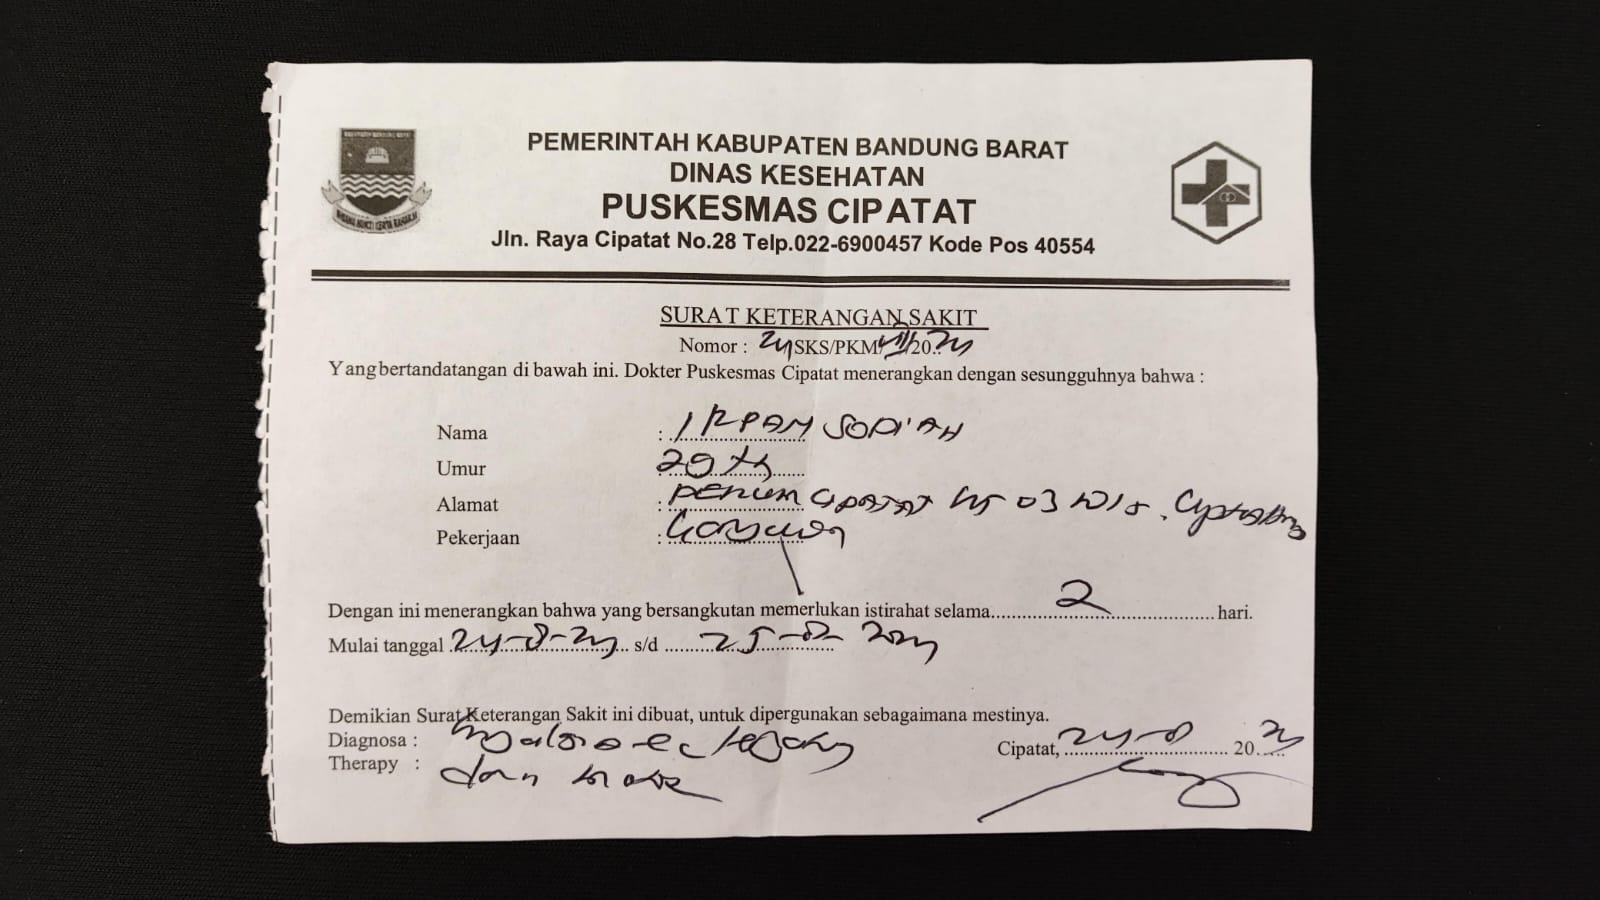 PEMERINTAH KABUPATEN BANDUNG BARAT
DINAS KESEHATAN
PUSKESMAS CIPATAT
Jln. Raya Cipatat No.28 Telp.022-6900457 Kode Pos 40554
SURAT KETERANGAN SAKIT
Nomor : 24 SKS/PKM/VIII/20..24
Yang bertandatangan di bawah ini. Dokter Puskesmas Cipatat menerangkan dengan sesungguhnya bahwa :
Nama : IRPAN SOPI'AH
Umur : 29 th
Alamat : Perum CIPATAT 03
Pekerjaan : Karyawan
Dengan ini menerangkan bahwa yang bersangkutan memerlukan istirahat selama 2 hari.
Mulai tanggal 24-8-24 s/d 25-8-2024
Demikian Surat Keterangan Sakit ini dibuat, untuk dipergunakan sebagaimana mestinya.
Diagnosa :
Therapy :
Cipatat, 24-8 2024